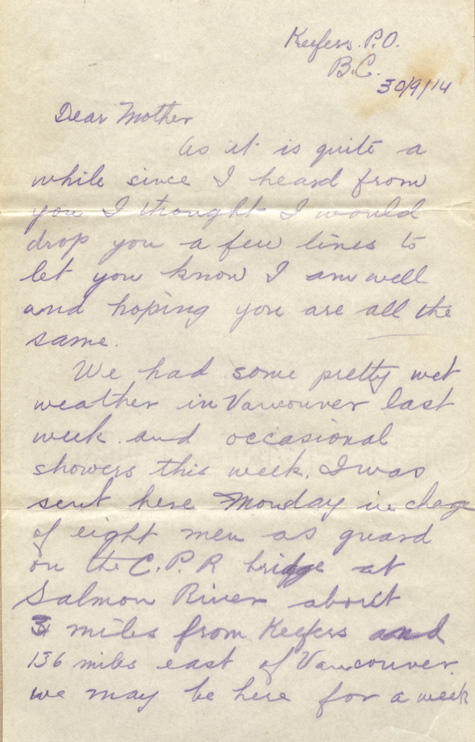 Keefers. P.O.
B.C.
30/9/14
Dear Mother
As it is quite a
while since I heard from
you I thought I would
drop you a few lines to
let you know I am well
and hoping you are all the
same.
We had some pretty wet
weather in Vancouver last
week and occasional
showers this week. I was
sent here Monday in charge
of eight men as guard
on the C.P.R bridge at
Salmon River about
3 miles from Keefers and
136 miles east of Vancouver.
we may be here for a week